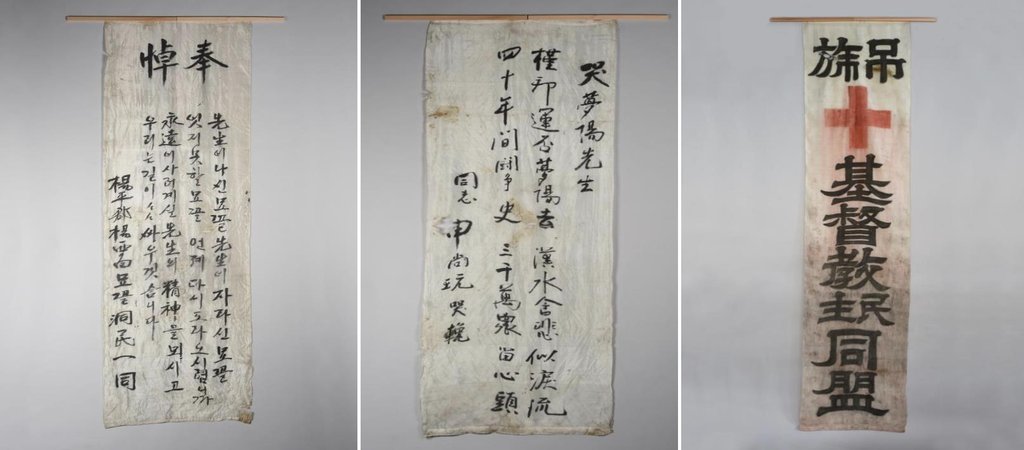 奉悼
先生이 나신 묘꼴 先生이 자라신 묘꼴
잇지 못할 묘꼴 언제 다시 도라오시렴니까
永遠이 사러계신 先生의 精神을 뫼시고
우리는 길이〃 싸우겟슴니다
楊平郡楊西面묘꼴洞民一同
哭夢陽先生
槿邦運否夢陽去 漢水含悲似淚流
四十年间鬪争史 三千萬衆留心頭
同志 申尚玩 哭輓
吊旗
基督教民主同盟